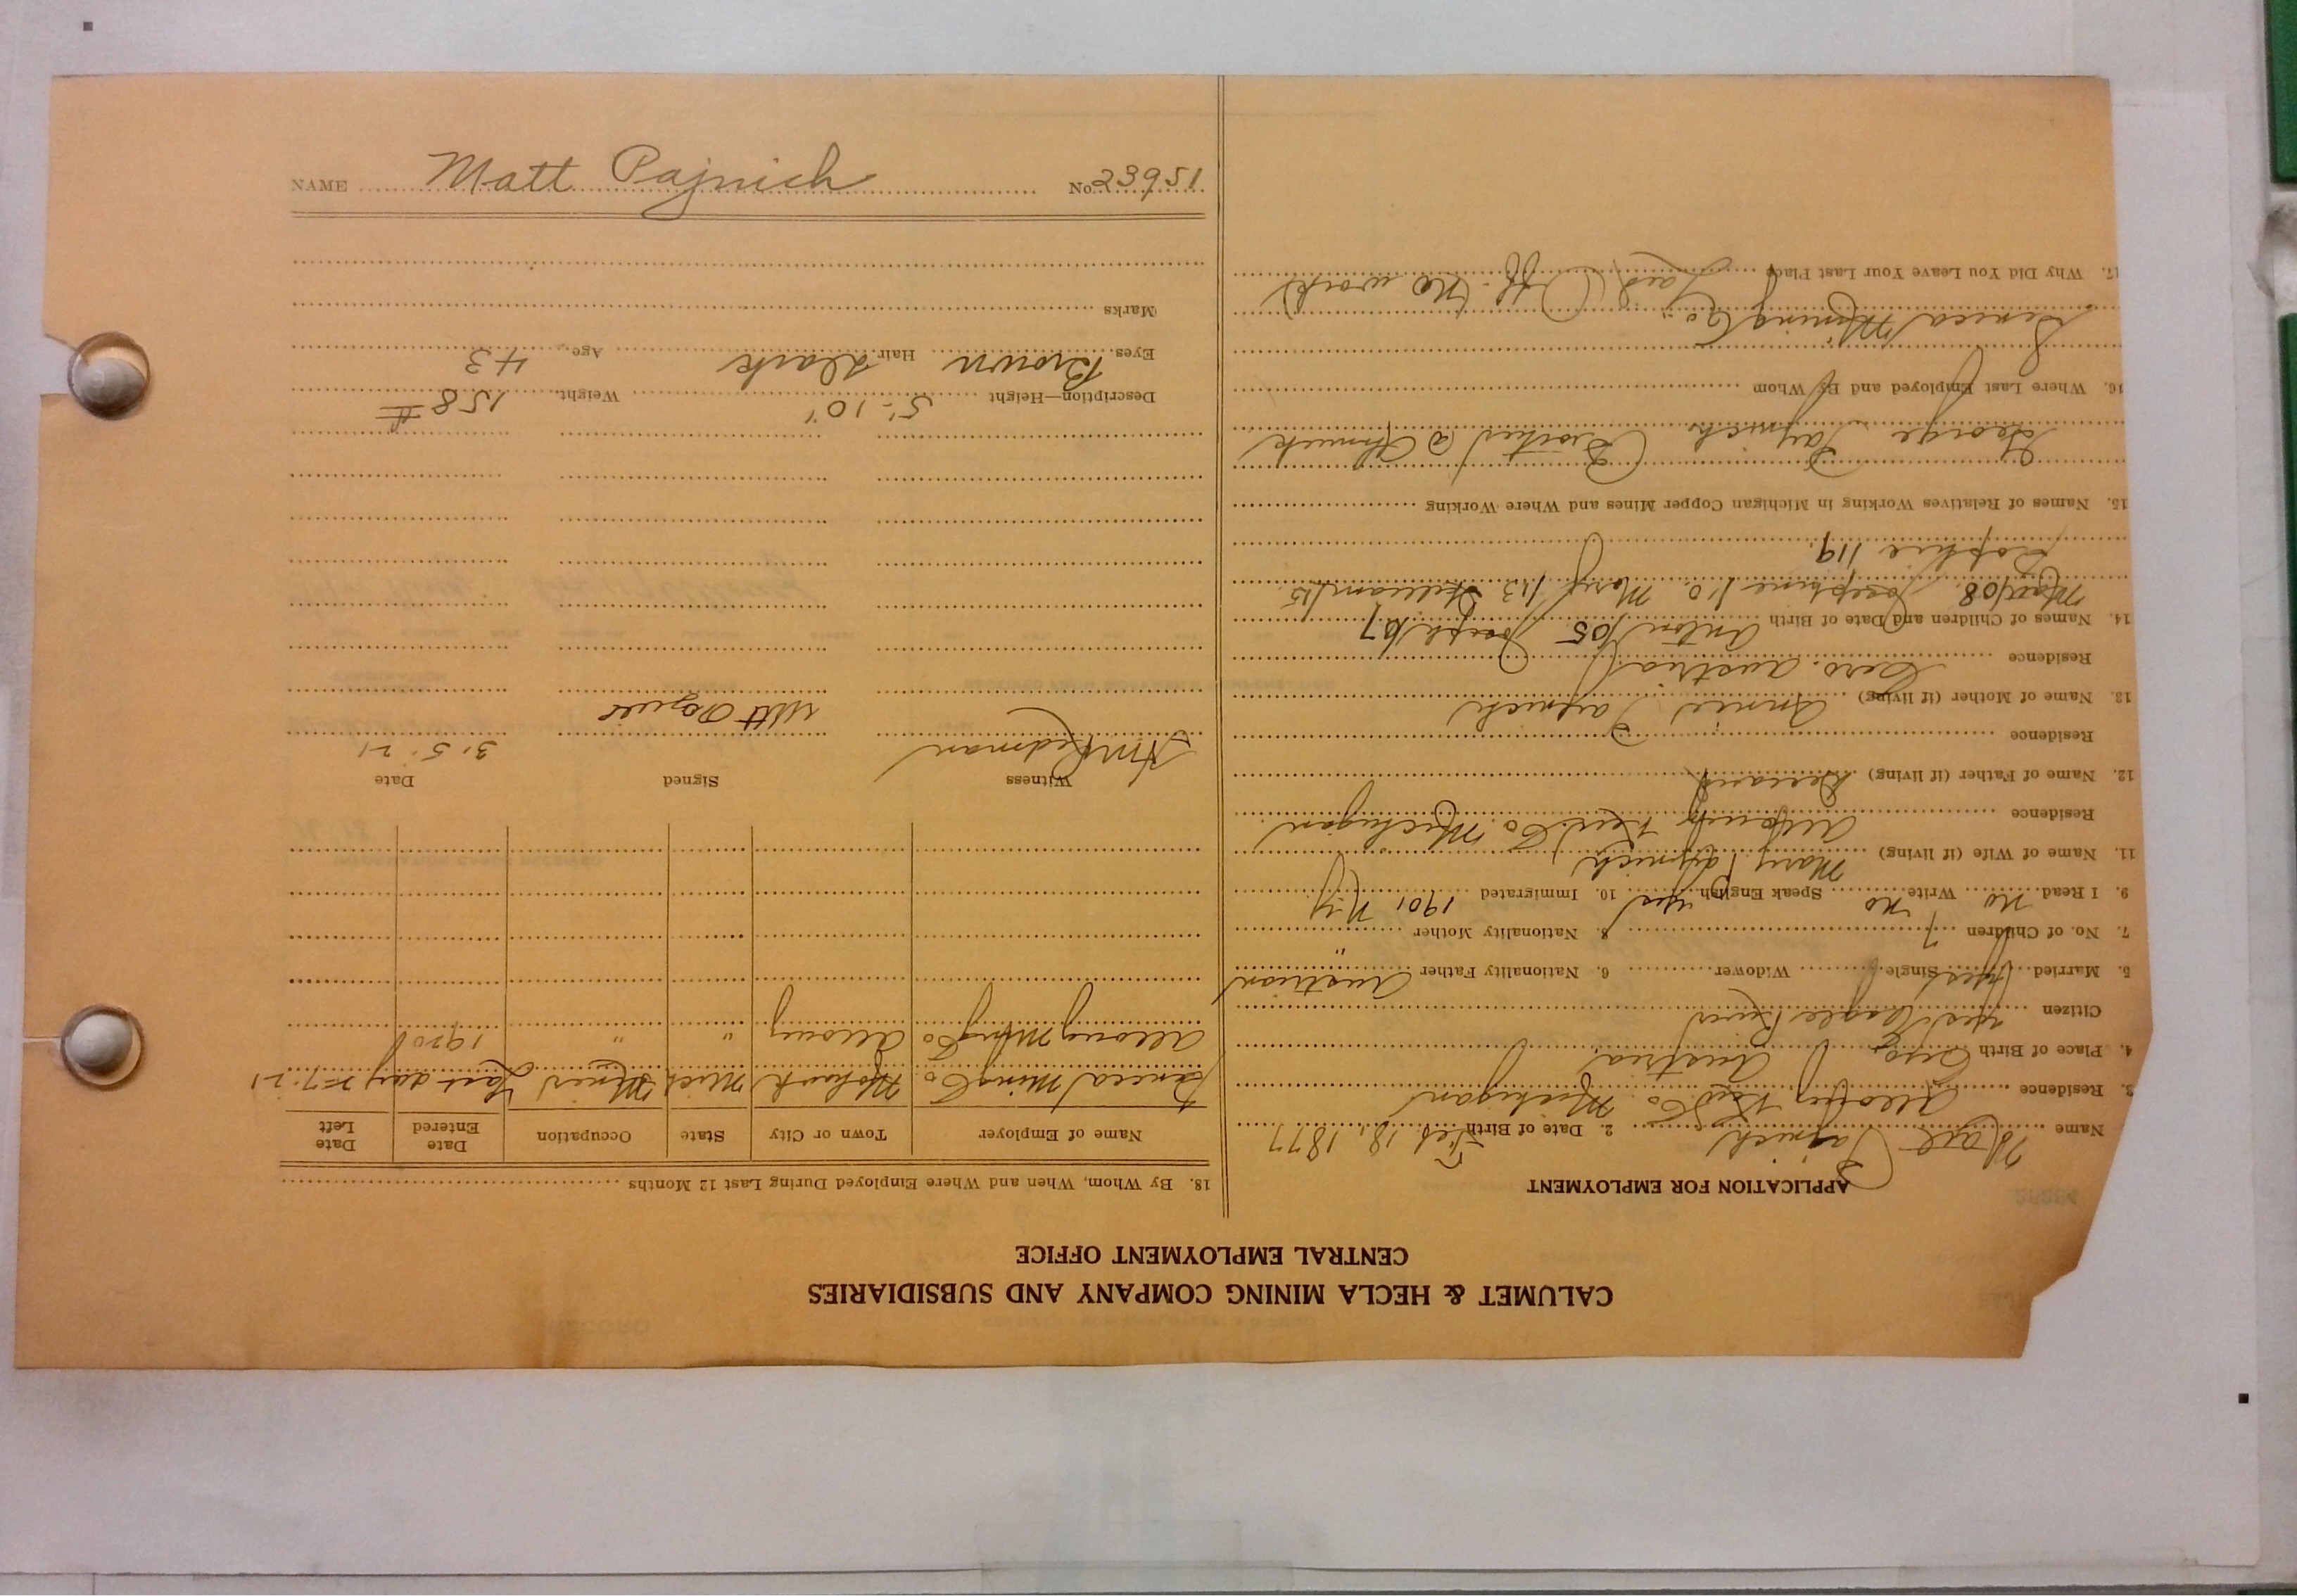 NAME Matt Pajnich No. 23951
CALUMET & HECLA MINING COMPANY AND SUBSIDIARIES
CENTRAL EMPLOYMENT OFFICE
APPLICATION FOR EMPLOYMENT
Name Matt Pajnich 2. Date of Birth Feb 18, 1877
3. Residence Allouez Kew. Co. Michigan
4. Place of Birth Austria
Citizen Yes Eagle River
5. Married Yes Single Widower 6. Nationality Father Austrian
7. No. of Children 7 8. Nationality Mother "
9. I Read no Write no Speak English yes 10. Immigrated 1901 N.Y.
11. Name of Wife (if living) Mary Pajnich
Residence Allouez Kew. Co. Michigan
12. Name of Father (if living) Deceased
Residence
13. Name of Mother (if living) Annie Pajnich
Residence Cero. Austria
14. Names of Children and Date of Birth Anton/05 Joseph/07
Max/08. Josephine/10. Mary/13 William/15
Sophie/19.
15. Names of Relatives Working in Michigan Copper Mines and Where Working
George Pajnich (Brother) @ Ahmeek
16. Where Last Employed and By Whom
Seneca Mining Co.
17. Why Did You Leave Your Last Place Laid Off. (No work)
18. By Whom, When and Where Employed During Last 12 Months
Name of Employer Town or City State Occupation Date Entered Date Left
Seneca Mining Co Mohawk Mich Miner Last day 2-7-21
Allouez Mining Co Allouez " " 1920
Witness Signed Date
Redman Matt 3-5-21
Description—Height 5'-10" Weight 158 #
Eyes Brown Hair Dark Age 43
Marks